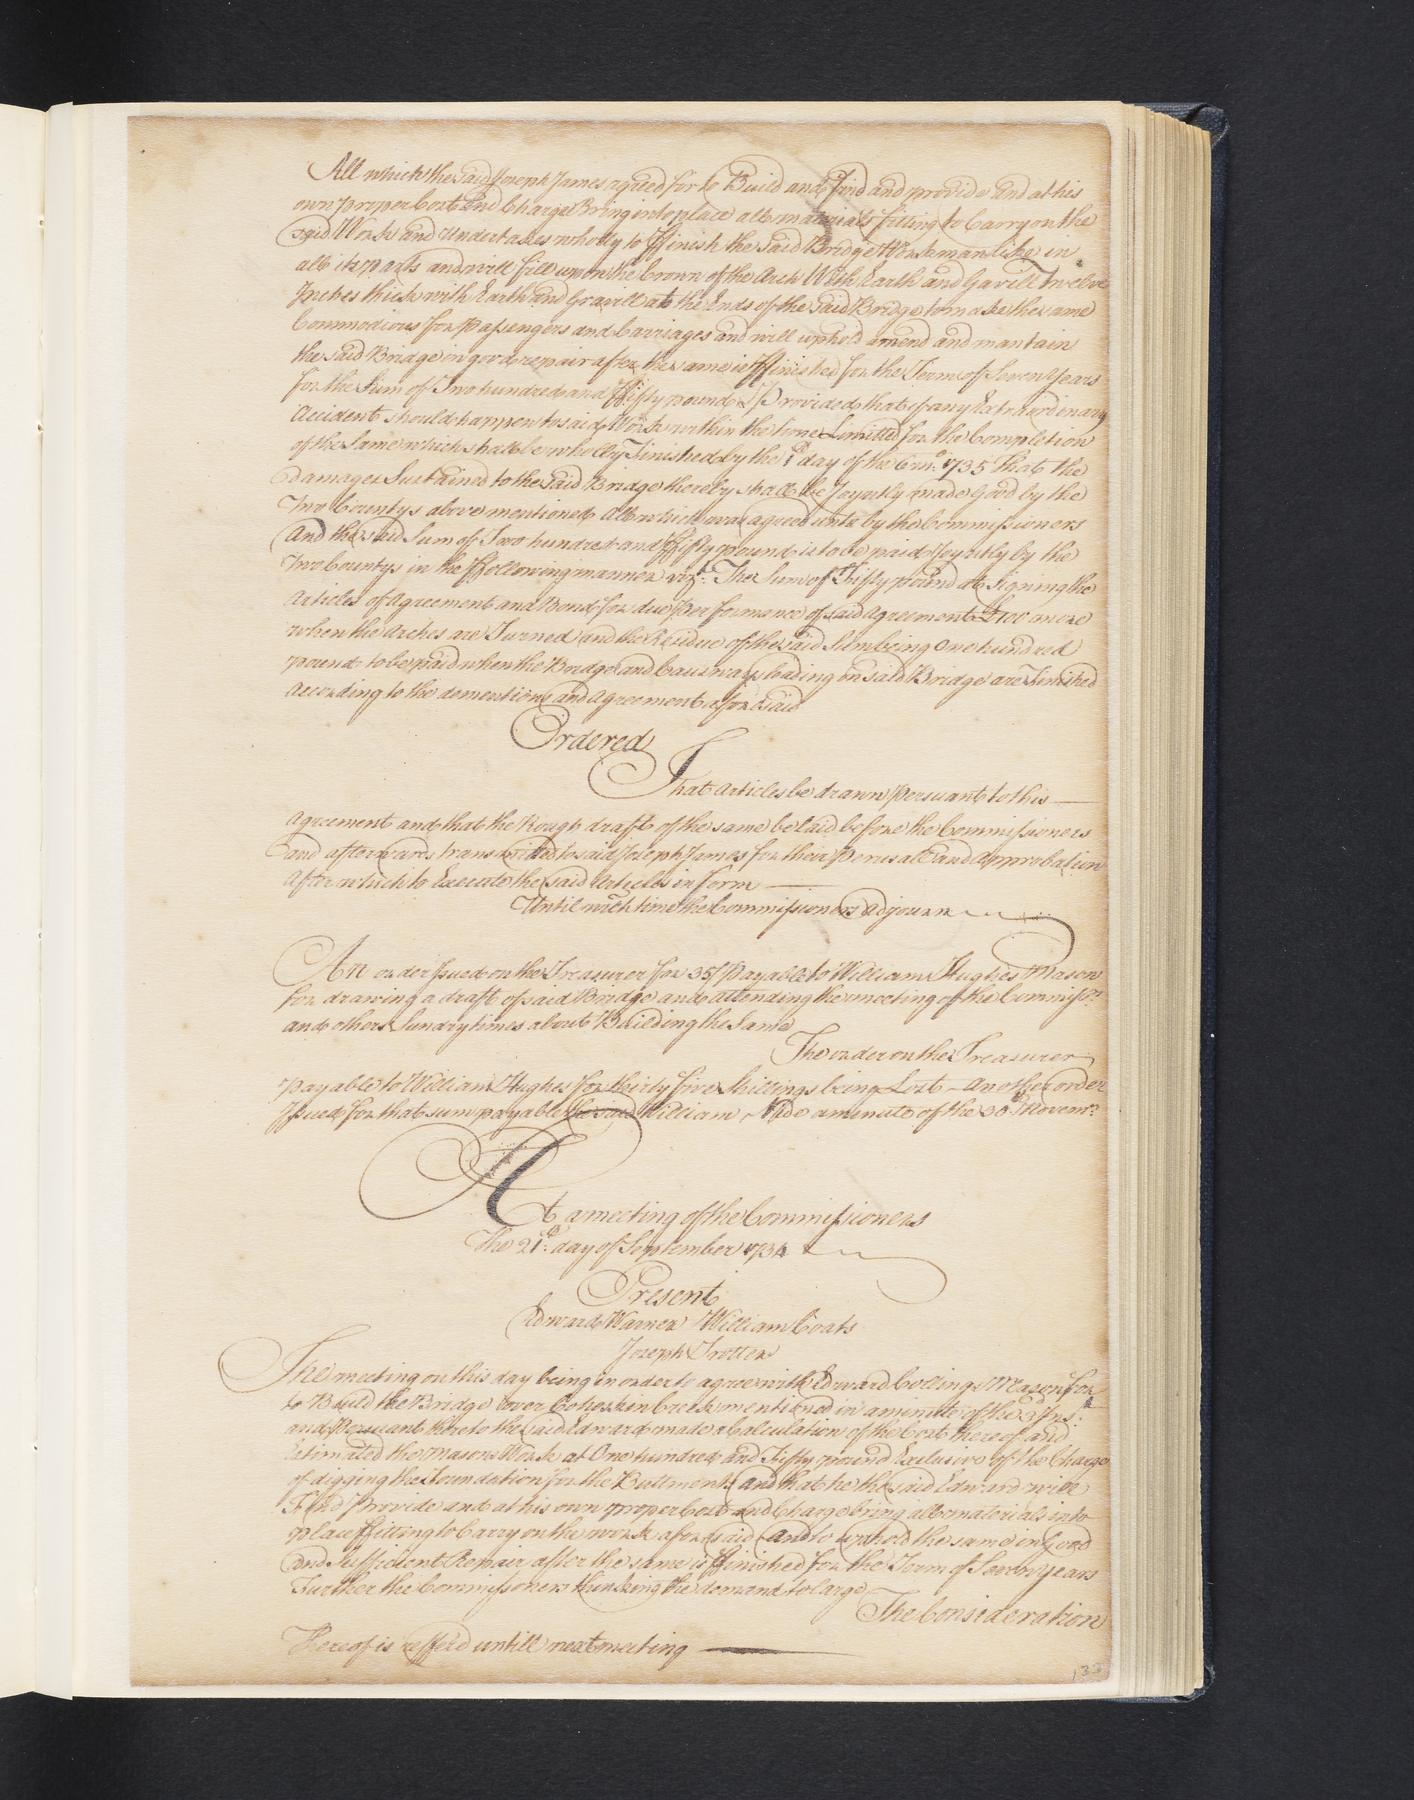 All which the said Joseph James agreed for to Build and find and provide and at his
own proper Cost and Charge Bring into place all materials fitting to Carry on the
said Work and undertakes wholly to ffinish the said Bridge Workman like in
all its parts and will fill upon the Crown of the Arch With Earth and Gravill Twelve
Inches thick with Earth and Gravill at the Ends of the said Bridge to make the same
Commodious for Passengers and Carriages and will uphold amend and mantain
the said Bridge in good repair after the same is ffinished for the Term of Seven Years
for the Sum of Two hundred and ffifty pound I Provided that if any Extraordinary
Accident should happen to said Work within the time Limitted for the Completion
of the Same which shall be wholly Finished by the 1st day of the 6mo: 1735 That the
damages Sustained to the said Bridge thereby shall be Joyntly made Good by the
Two Countys above mentioned All which was agreed unto by the Commissioners
And the said Sum of Two hundred and ffifty pound is to be paid Joyntly by the
Two Countys in the ffollowing manner vizt: The Sum of Fifty pound at Signing the
Articles of Agreement and Bond for due Performance of said Agreement £100 more
when the Arches are Turned and the Residue of the said Sum being One hundred
pound to be paid when the Bridge and Causways leading on said Bridge are Finished
According to the demontions and Agreement aforesaid
Ordered
That Articles be drawn Persuant to this
Agreement and that the Rough draft of the same be laid before the Commissioners
and afterwards transmitted to said Joseph James for their Perusall and Approbation
After which to Execute the said Articles in form
Until wich time the Commissioners Adjourn
An order Issued on the Treasurer for 35/ Payable to William Hughes Mason
for drawing a draft of said Bridge and attending the meeting of the Commissrs
and others Sundry times about Building the Same
The order on the Treasurer
Payable to William Hughes for thirty five shillings being Lost - Another order
Issued for that sum payable to said William Vide a minute of the 30th Novemr:
At a meeting of the Commissioners
The 21st: day of September 1734
Present
Edward Warner William Coats
Joseph Trotter
The meeting on this day being in order to agree with Edward Collings Mason for
to Build the Bridge over Cohockin Creek mentioned in a minute of the 3d Inst:
and Persuant thereto the said Edward made a Calculation of the Cost thereof and
Estimated the Masons Work at One hundred and Fifty pound Exclusive of the Charge
of digging the Foundation for the Buttments and that he the said Edward will
Find Provide and at his own proper Cost and Charge bring all materials into
place ffitting to Carry on the work aforesaid and to uphold the same in Good
and Sufficient Repair after the same is ffinished for the Term of Seven years
Further the Commissioners thinking the demand to large
The Consideration
Thereof is refferd untill next meeting